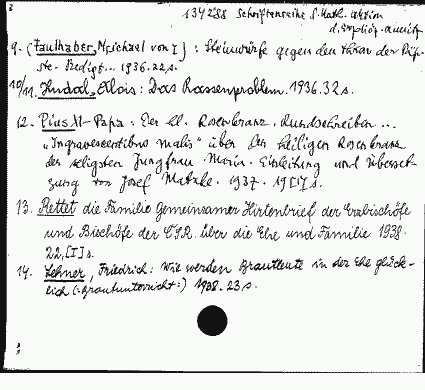 134288 Schriftenreihe d. Kath. Aktion
9. (Faulhaber, Michael von I): Steinwürfe gegen den Thron der Päp-
ste. Predigt... 1936. 22 s.
10/11. Hudal, Alois: Das Rassenproblem. 1936. 32 s.
12. Pius XI - Papa: Der hl. Rosenkranz. Rundschreiben...
„Ingravescentibus malis" über den heiligen Rosenkranz
der seligsten Jungfrau Maria. Einleitung und Überset-
zung von Josef Matzke. 1937. 19 [I] s.
13. Rettet die Familie Gemeinsamer Hirtenbrief der Erzbischöfe
und Bischöfe der ČSR. über die Ehe und Familie 1938.
22, [I] s.
14. Lehner, Friedrich: Wie werden Brautleute in der Ehe glück-
lich (:Brautunterricht:) 1938. 23 s.